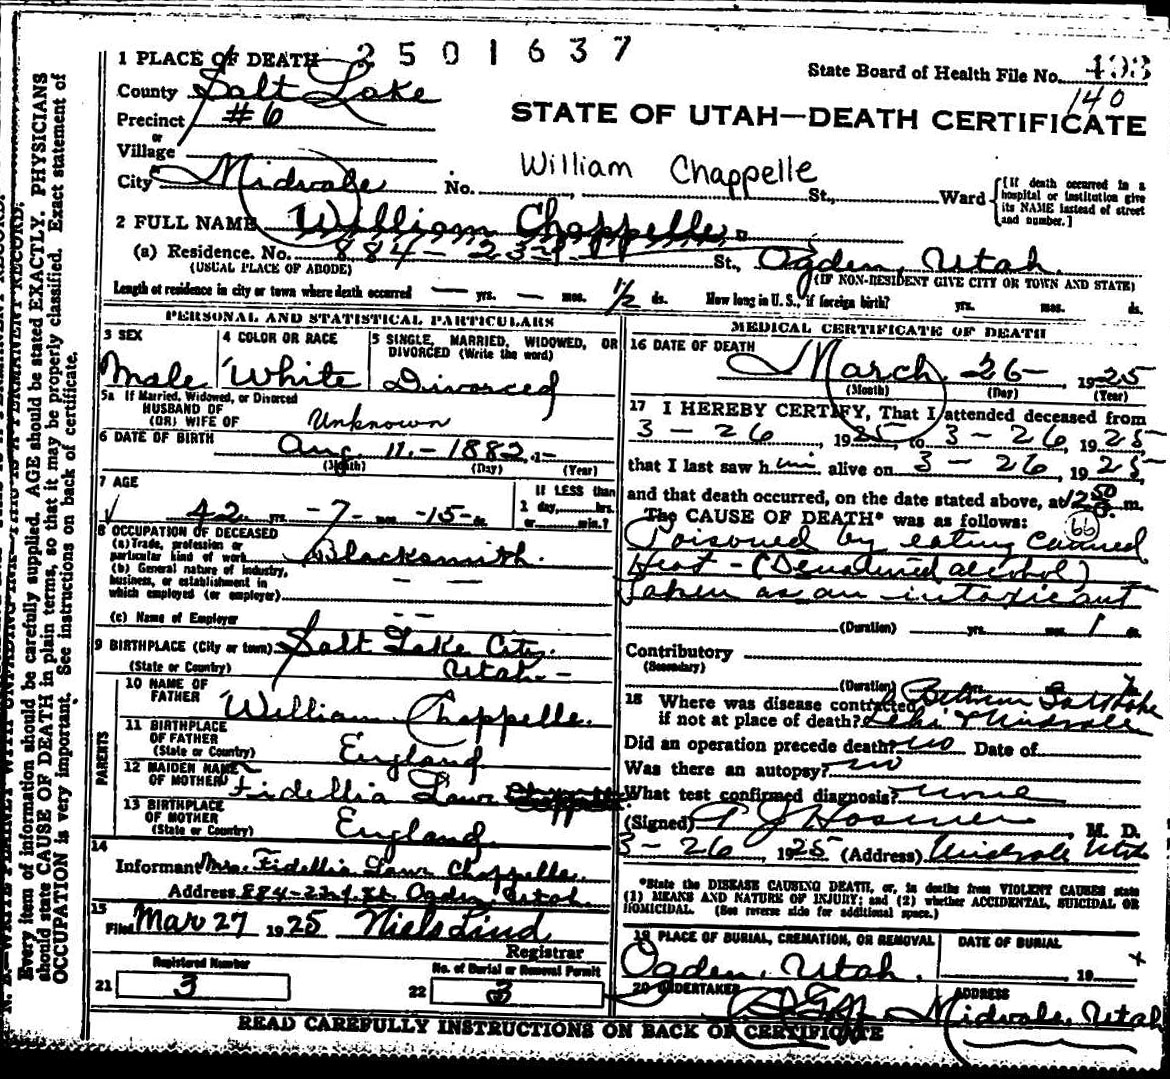 2501637
1 PLACE OF DEATH
State Board of Health File No. 493
140
County Salt Lake
Precinct #6
STATE OF UTAH—DEATH CERTIFICATE
or
Village
William Chappelle
City Midvale No. St., Ward
[If death occurred in a hospital or institution give its NAME instead of street and number.]
2 FULL NAME William Chappelle
(a) Residence. No. 884- 23rd St., Ogden, Utah.
(USUAL PLACE OF ABODE) (IF NON-RESIDENT GIVE CITY OR TOWN AND STATE)
Length of residence in city or town where death occurred — yrs. — mos. 1/2 ds. How long in U. S., if foreign birth? yrs. mos. ds.
PERSONAL AND STATISTICAL PARTICULARS
3 SEX
Male
4 COLOR OR RACE
White
5 SINGLE, MARRIED, WIDOWED, OR DIVORCED (Write the word)
Divorced
5a If Married, Widowed, or Divorced
HUSBAND OF
(OR) WIFE OF Unknown
6 DATE OF BIRTH Aug. 11.-1882.-
(Month) (Day) (Year)
7 AGE
42 yrs. -7- mos. -15- ds.
If LESS than
1 day,....hrs.
or....min.?
8 OCCUPATION OF DECEASED
(a) Trade, profession or
particular kind of work Blacksmith.
(b) General nature of industry,
business, or establishment in
which employed (or employer) — —
(c) Name of Employer - -
9 BIRTHPLACE (City or town) Salt Lake City.
(State or Country) Utah.-
PARENTS
10 NAME OF
FATHER William Chappelle.
11 BIRTHPLACE
OF FATHER
(State or Country) England
12 MAIDEN NAME
OF MOTHER Fidellia Law
13 BIRTHPLACE
OF MOTHER
(State or Country) England.
14
Informant Mrs. Fidellia Law Chappelle.
Address 884-23rd St. Ogden, Utah.
15
Filed Mar 27 1925 Niels Lind
Registrar
Registered Number
21 3
No. of Burial or Removal Permit
22 3
MEDICAL CERTIFICATE OF DEATH
16 DATE OF DEATH
March 26- 1925
(Month) (Day) (Year)
17 I HEREBY CERTIFY, That I attended deceased from
3 - 26, 1925 to 3 - 26, 1925
that I last saw him alive on 3 - 26, 1925
and that death occurred, on the date stated above, at 12 50 m.
The CAUSE OF DEATH* was as follows: 66
Poisoned by eating canned
Heat - (Denatured alcohol)
Taken as an intoxicant
(Duration) yrs. mos. 1 ds.
Contributory
(Secondary)
(Duration) yrs.
18 Where was disease contracted Between Salt Lake
if not at place of death? Lehi & Midvale
Did an operation precede death? no Date of
Was there an autopsy? no
What test confirmed diagnosis? none
(Signed) Hosmer, M. D.
3 - 26, 1925 (Address) Midvale Utah
*State the DISEASE CAUSING DEATH, or, in deaths from VIOLENT CAUSES state
(1) MEANS AND NATURE OF INJURY; and (2) whether ACCIDENTAL, SUICIDAL OR
HOMICIDAL. (See reverse side for additional space.)
19 PLACE OF BURIAL, CREMATION, OR REMOVAL
Ogden, Utah.
DATE OF BURIAL
19
20 UNDERTAKER
ADDRESS
Midvale, Utah
READ CAREFULLY INSTRUCTIONS ON BACK OF CERTIFICATE
N. B.—WRITE PLAINLY WITH UNFADING INK—THIS IS A PERMANENT RECORD.
Every item of information should be carefully supplied. AGE should be stated EXACTLY. PHYSICIANS
should state CAUSE OF DEATH in plain terms, so that it may be properly classified. Exact statement of
OCCUPATION is very important. See instructions on back of certificate.